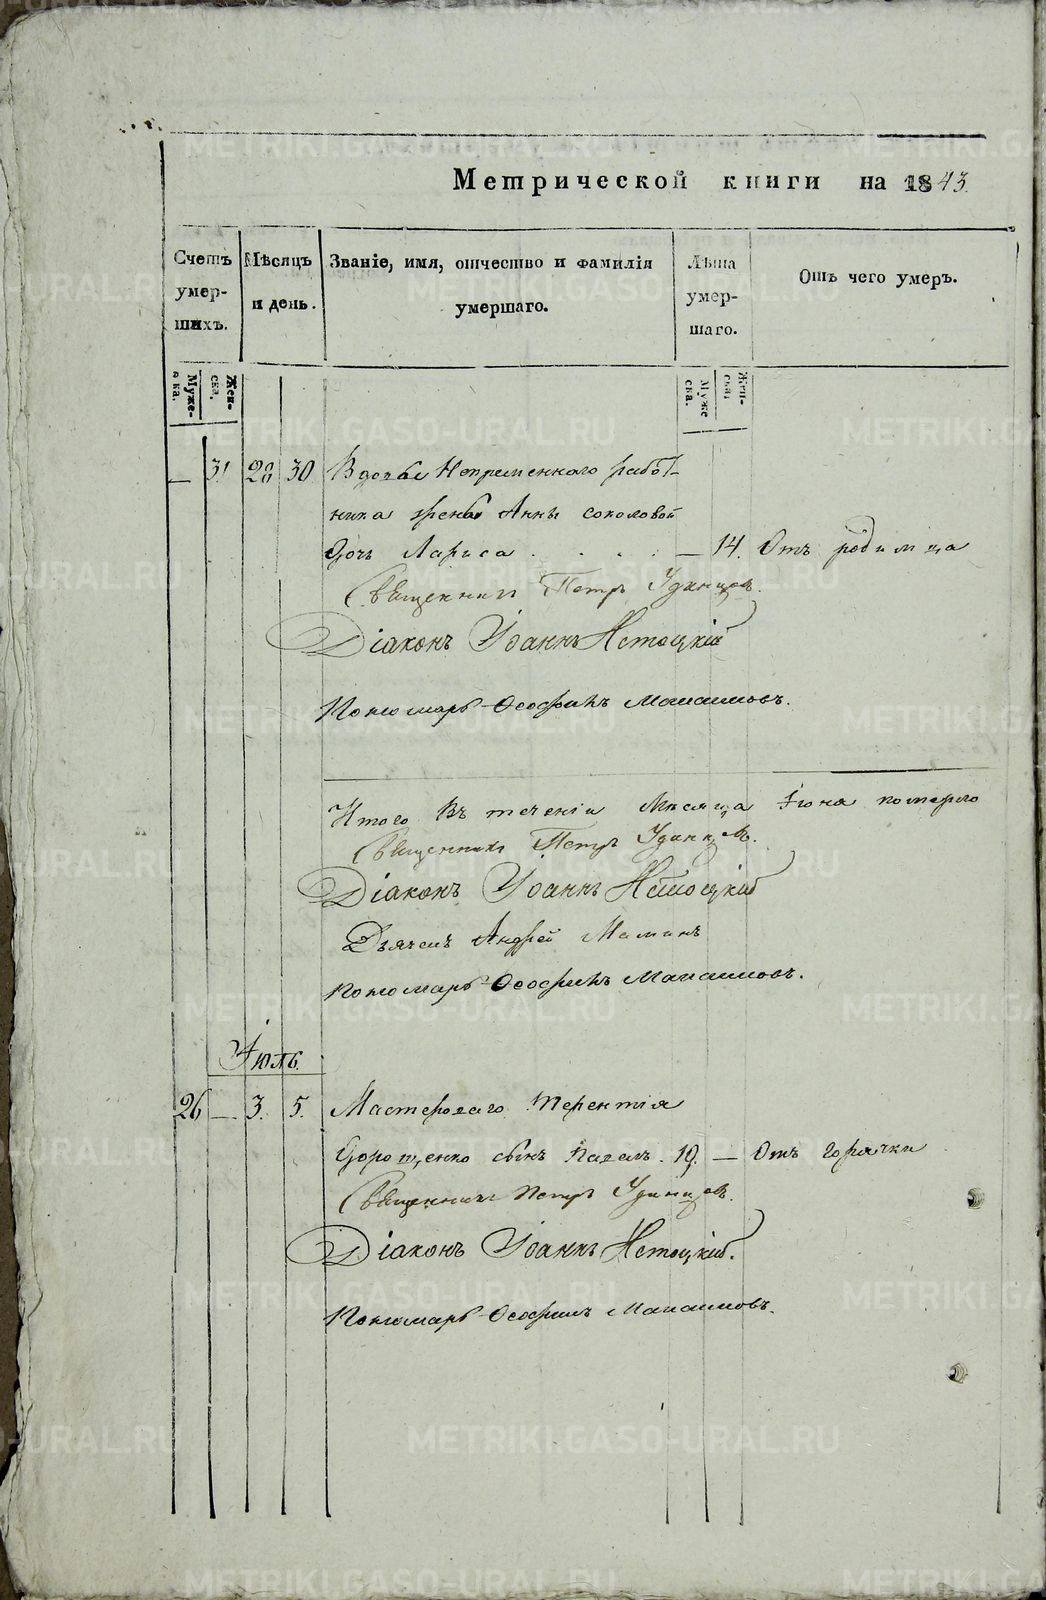 Метрической книги на 1843.
Счетъ умершихъ.
Мѣсяцъ и день.
Званіе, имя, отчество и фамилія умершаго.
Лѣта умершаго.
Отъ чего умеръ.
Муже-ска.
Жен-ска.
Муже-ска.
Жен-ска.
— 31 28 30 Вдовы Непременнаго работ-
ника Анны соколовой
Дочь Лариса . . . . — 14. Отъ родимца
Священникъ Петръ Удинцов.
Діаконъ Іоаннъ Нетоцкій
Пономарь Ѳеофанъ
Итого Въ теченіи Месяца Іюня померло
Священникъ Петръ Удинцов.
Діаконъ Іоаннъ Нетоцкій
Дьячекъ Андрей Маминъ
Пономарь
Іюль.
26 — 3. 5. Мастероваго Терентія
сынъ Павелъ. 19. — Отъ Горячки
Священникъ Петръ Удинцов.
Діаконъ Іоаннъ Нетоцкій.
Пономарь
METRIKI.GASO-URAL.RU